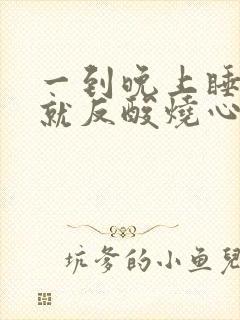 一到晚上睡
就反酸燒心
坑爹的小鱼兒